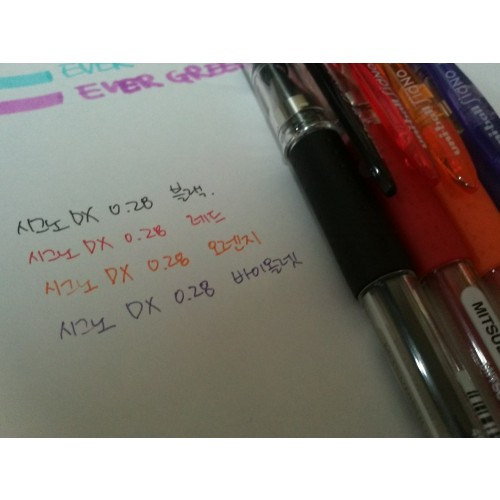 EVER
EVER GREE
시그노 DX 0.28 블랙.
시그노 DX 0.28 레드
시그노 DX 0.28 오렌지
시그노 DX 0.28 바이올렛
uniball SIGNO
uniball SIGNO
MITSUB